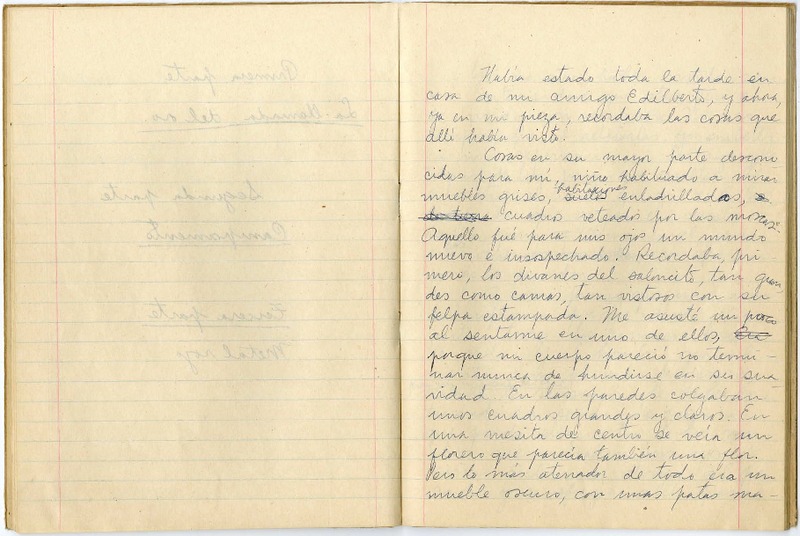 Primera parte
La llamada del oro
Segunda parte
Campamento
Tercera parte
Metal roy
Había estado toda la tarde en
casa de mi amigo Edilberto, y ahora,
ya en mi pieza, recordaba las cosas que
allí había visto.
Cosas en su mayor parte descono
cidas para mí, niño habituado a mirar
muebles grises, suelos habitaciones enladrillados,
cuadros veteados por las moscas.
Aquello fué para mis ojos un mundo
nuevo e insospechado. Recordaba, pri-
mero, los divanes del saloncito, tan gran
des como camas, tan vistosos con su
felpa estampada. Me asusté un poco
al sentarme en uno de ellos,
porque mi cuerpo pareció no termi-
nar nunca de hundirse en su sua
vidad. En las paredes colgaban
unos cuadros grandes y claros. En
una mesita de centro se veía un
florero que parecía también una flor.
Pero lo más aterrador de todo era un
mueble oscuro, con unas patas ma-